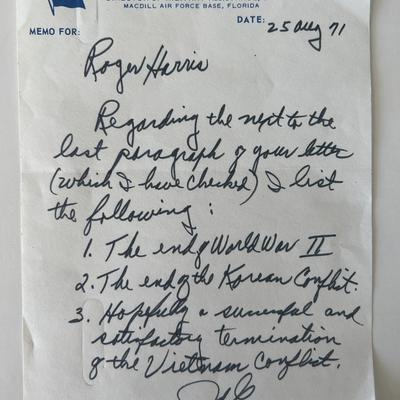 MACDILL AIR FORCE BASE, FLORIDA
MEMO FOR: DATE: 25 Aug 71
Roger Harris
Regarding the next to the
last paragraph of your letter
(which I have checked) I list
the following:
1. The end of World War II
2. The end of the Korean Conflict.
3. Hopefully a successful and
satisfactory termination
of the Vietnam Conflict.